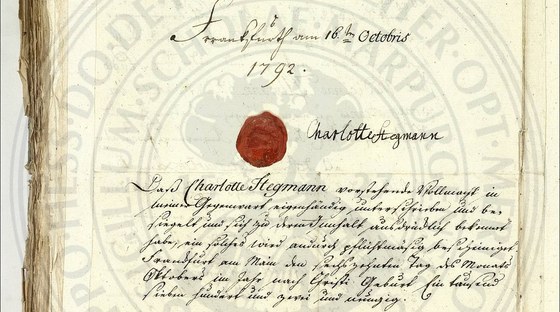 Franckfurth am 16.ten Octobris
1792.
Charlotte Stegmann
Daß Charlotte Stegmann vorstehende Vollmacht in
meiner Gegenwart eigenhändig unterschrieben und be-
siegelt und sich zu deren Innhalt ausdrücklich bekannt
habe, ein solches wird andurch pflichtmäsig bescheiniget
Franckfurt am Main den sechszehnten Tag des Monats
Oktobers im Jahr nach Christi Geburt Ein tausend
sieben hundert und zwei und neunzig.